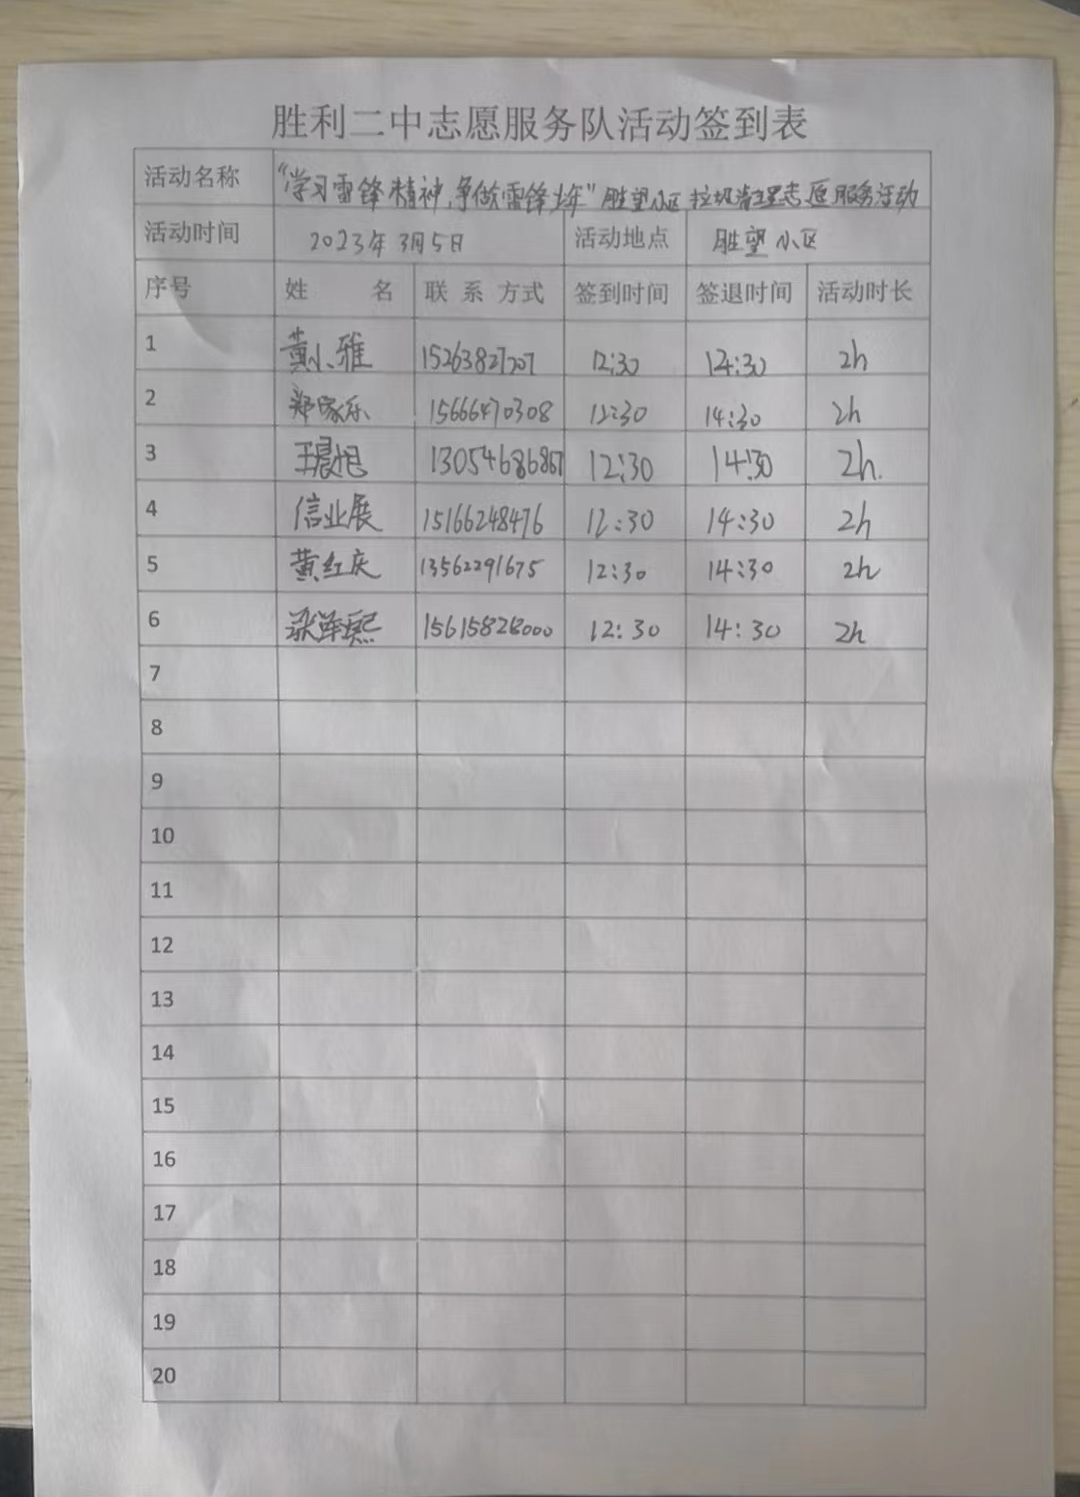 胜利二中志愿服务队活动签到表
活动名称 “学习雷锋精神,争做雷锋少年”胜望小区垃圾清理志愿服务活动
活动时间 2023年3月5日 活动地点 胜望小区
序号 姓 名 联系方式 签到时间 签退时间 活动时长
1 黄小雅 15263827207 12:30 14:30 2h
2 郑家乐 15666470308 12:30 14:30 2h
3 王晨旭 13054686867 12:30 14:30 2h.
4 信业展 15166248476 12:30 14:30 2h
5 黄红庆 13562291675 12:30 14:30 2h
6 张泽熙 15615828000 12:30 14:30 2h
7
8
9
10
11
12
13
14
15
16
17
18
19
20